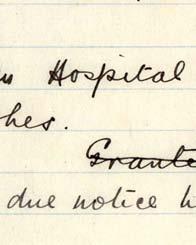 Hospital
hes.
Grante
due notice h